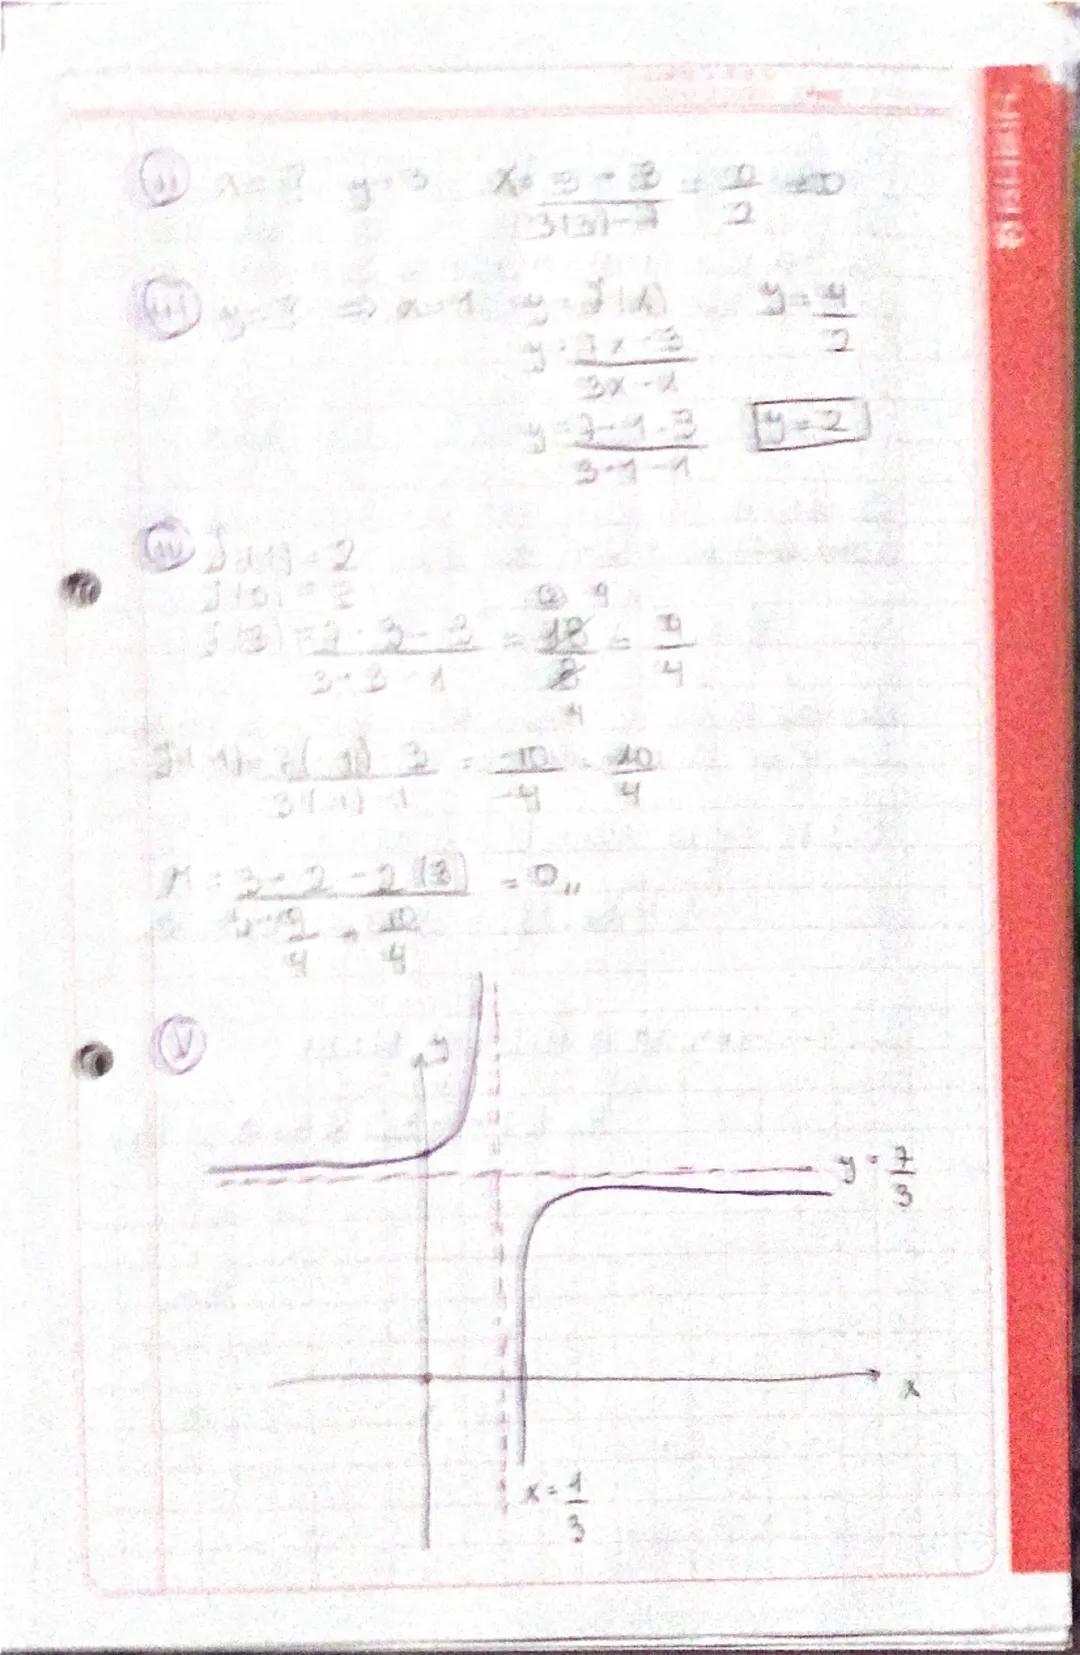 ii) x = ? y = 3 x = \frac{3 - 3}{3(3) - 7} = \frac{0}{2} = 0
iii) y = ? ⇒ x = 1 y = f(x) y = \frac{4}{2}
y = \frac{7x - 3}{3x - 1}
y = \frac{7 - 1 - 3}{3 - 1 - 1} y = 2
iv) f(1) = 2
f(0) = 3
f(3) = \frac{7 · 3 - 3}{3 · 3 - 1} = \frac{18}{8} = \frac{9}{4}
f(-1) = \frac{7(-1) - 3}{3(-1) - 1} = \frac{-10}{-4} = \frac{10}{4}
M = \frac{3 · 2 - 2(3)}{\frac{9}{4} + \frac{10}{4}} = 0,,
V
y
y = \frac{7}{3}
x
x = \frac{1}{3}